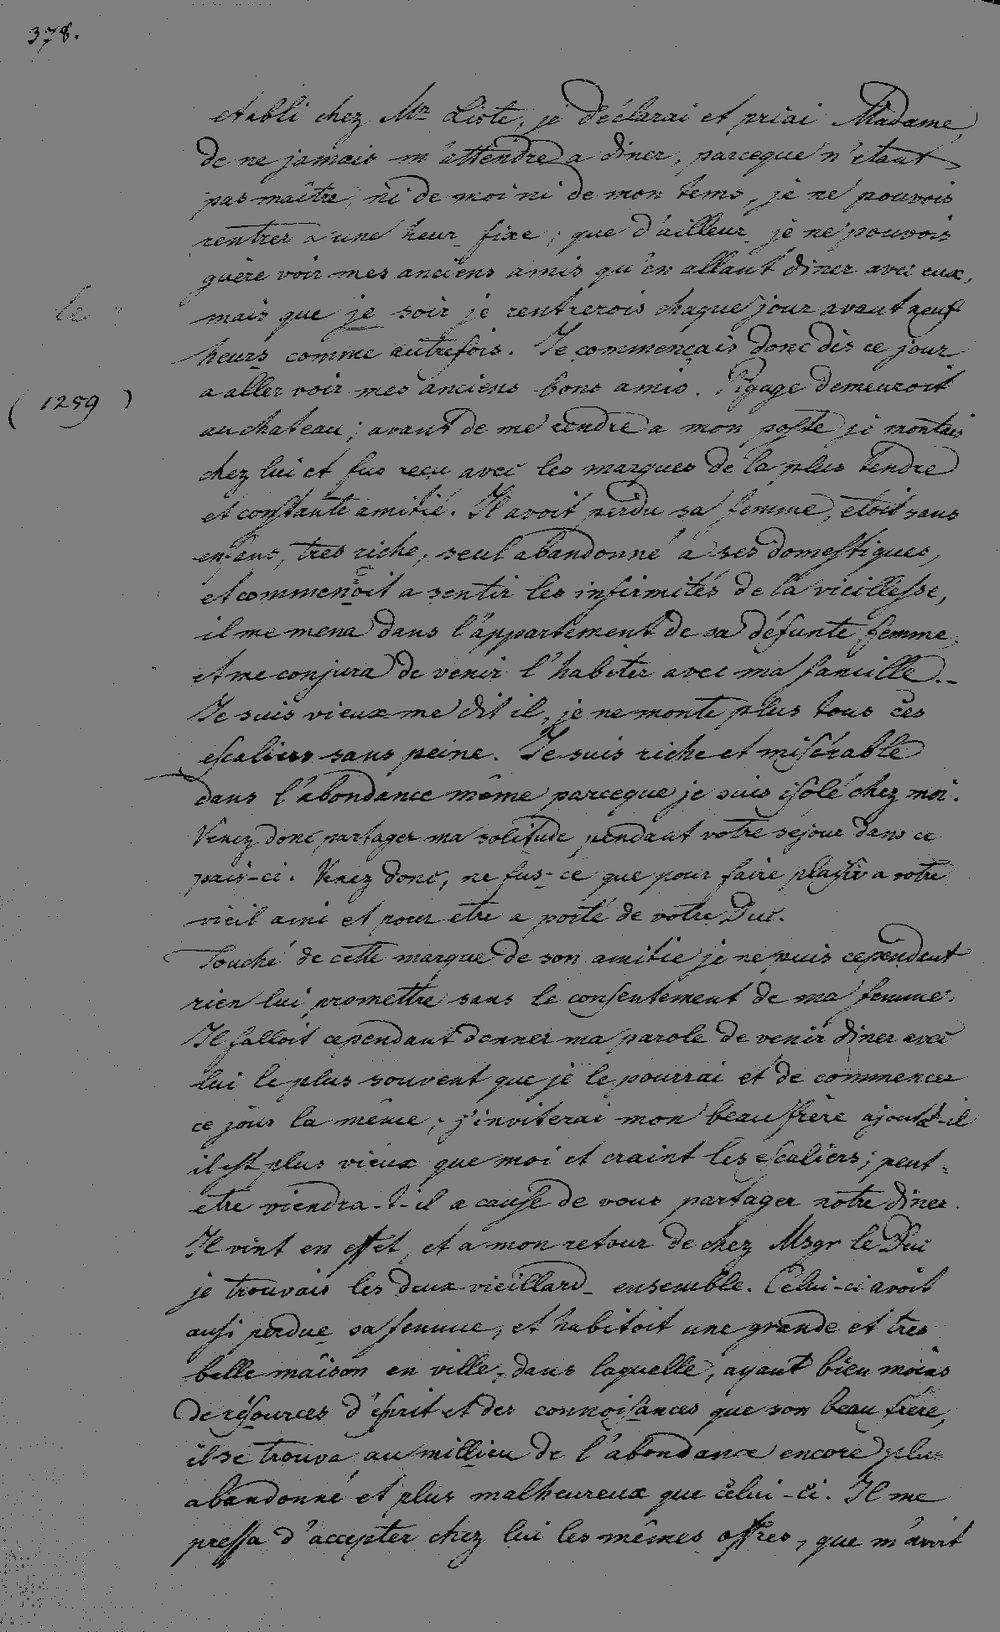 378.
etabli chez Mr Liste, je déclarai et priai Madame,
de ne jamais m'attendre a diner, parceque n'etant
pas maître, ni de moi ni de mon tems, je ne pouvois
rentrer a une heur fixe; que d'ailleur je ne pouvois
guère voir mes anciens amis qu'en allant diner avec eux,
le
mais que je soir je rentrerois chaque jour avant neuf
heurs comme autrefois. Je commençais donc dès ce jour
a aller voir mes anciens bons amis. Pigage demeuroit
( 1259 )
au chateau; avant de me rendre a mon poste je montais
chez lui et fus reçu avec les marques de la plus tendre
et constante amitié. Il avoit perdu sa femme, etoit sans
enfans, tres riche, seul abandonné a ses domestiques,
et commençoit a sentir les infirmités de la vieillesse,
il me mena dans l'appartement de sa défunte femme,
et me conjura de venir l'habiter avec ma famille.-
Je suis vieux me dit il, je ne monte plus tous ces
escaliers sans peine. Je suis riche et misérable
dans l'abondance même parceque je suis isolé chez moi.
Venez donc partager ma solitude pendant votre séjour dans ce
pais-ci. Venez donc, ne fus-ce que pour faire plasir a votre
vieil ami et pour etre a porté de votre Duc.
Touché de cette marque de son amitie je ne puis cependant
rien lui promettre sans le consentement de ma femme.
Il falloit cependant donner ma parole de venir diner avec
lui le plus souvent que je le pourrai et de commencer
ce jour la même; j'inviterai mon beau frère ajouta-il
il est plus vieux que moi et craint les escaliers; peut-
etre viendra-t-il a cause de vous partager notre diner.
Il vint en effet, et a mon retour de chez Msgr le Duc
je trouvais les deux vieillard ensemble. Celui-ci avoit
aussi perdue sa femme, et habitoit une grande et tres
belle maison en ville, dans laquelle, ayant bien moins
de résources d'esprit et des connoisances que son beau frere,
il se trouva au millieu de l'abondance encore plus
abandonné et plus malheureux que celui-ci. Il me
pressa d'accepter chez lui les mêmes offres, que m'avoit